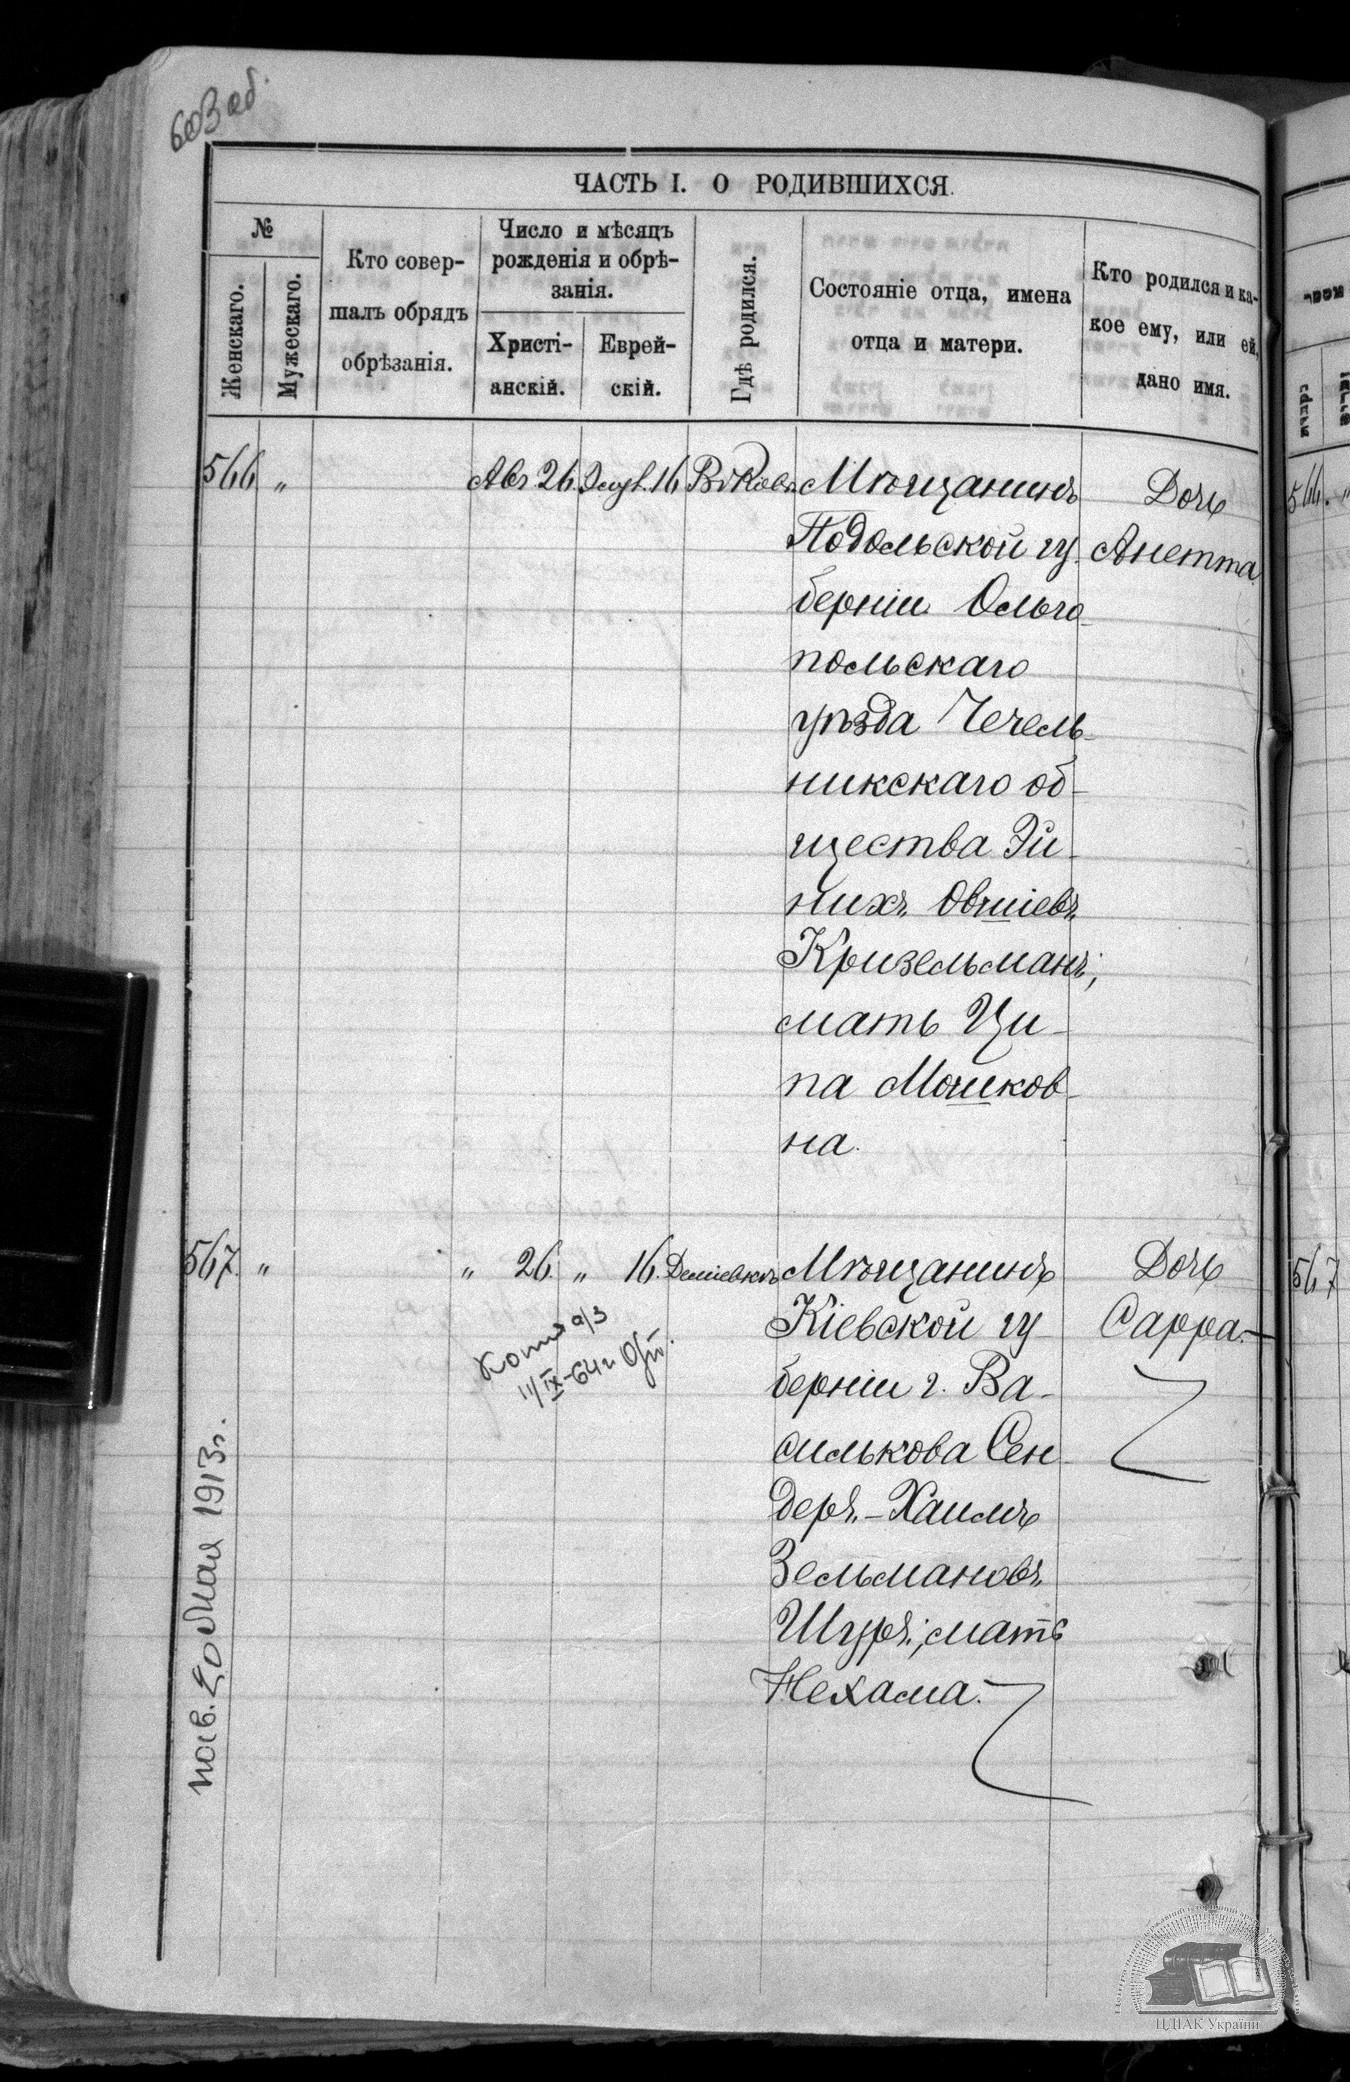 603 об.
ЧАСТЬ I. О РОДИВШИХСЯ.
№
Женскаго.
Мужескаго.
Кто совер-
шалъ обрядъ
обрѣзанія.
Число и мѣсяцъ
рожденія и обрѣ-
занія.
Христі-
анскій.
Еврей-
скій.
Гдѣ родился.
Состояніе отца, имена
отца и матери.
Кто родился и ка-
кое ему, или ей,
дано имя.
566 „ Авг 26. 16 Мѣщанинъ
Подольской гу-
берніи Ольго-
польскаго
уѣзда Чечель-
никскаго об-
щества Эй-
нихъ Овшіевъ
Кризельманъ;
мать Ци-
па Мошков-
на.
Дочь
Анетта.
567. „ „ 26. „ 16. Деміевкѣ Мѣщанинъ
Кіевской гу-
берніи г. Ва-
силькова Сен-
деръ-Хаимъ
Зельмановъ
Шуръ; мать
Нехама.
Дочь
Сарра.
Копия а/з
11/IX-64 г.
1913г.
566. „
567
ЦДІАК України